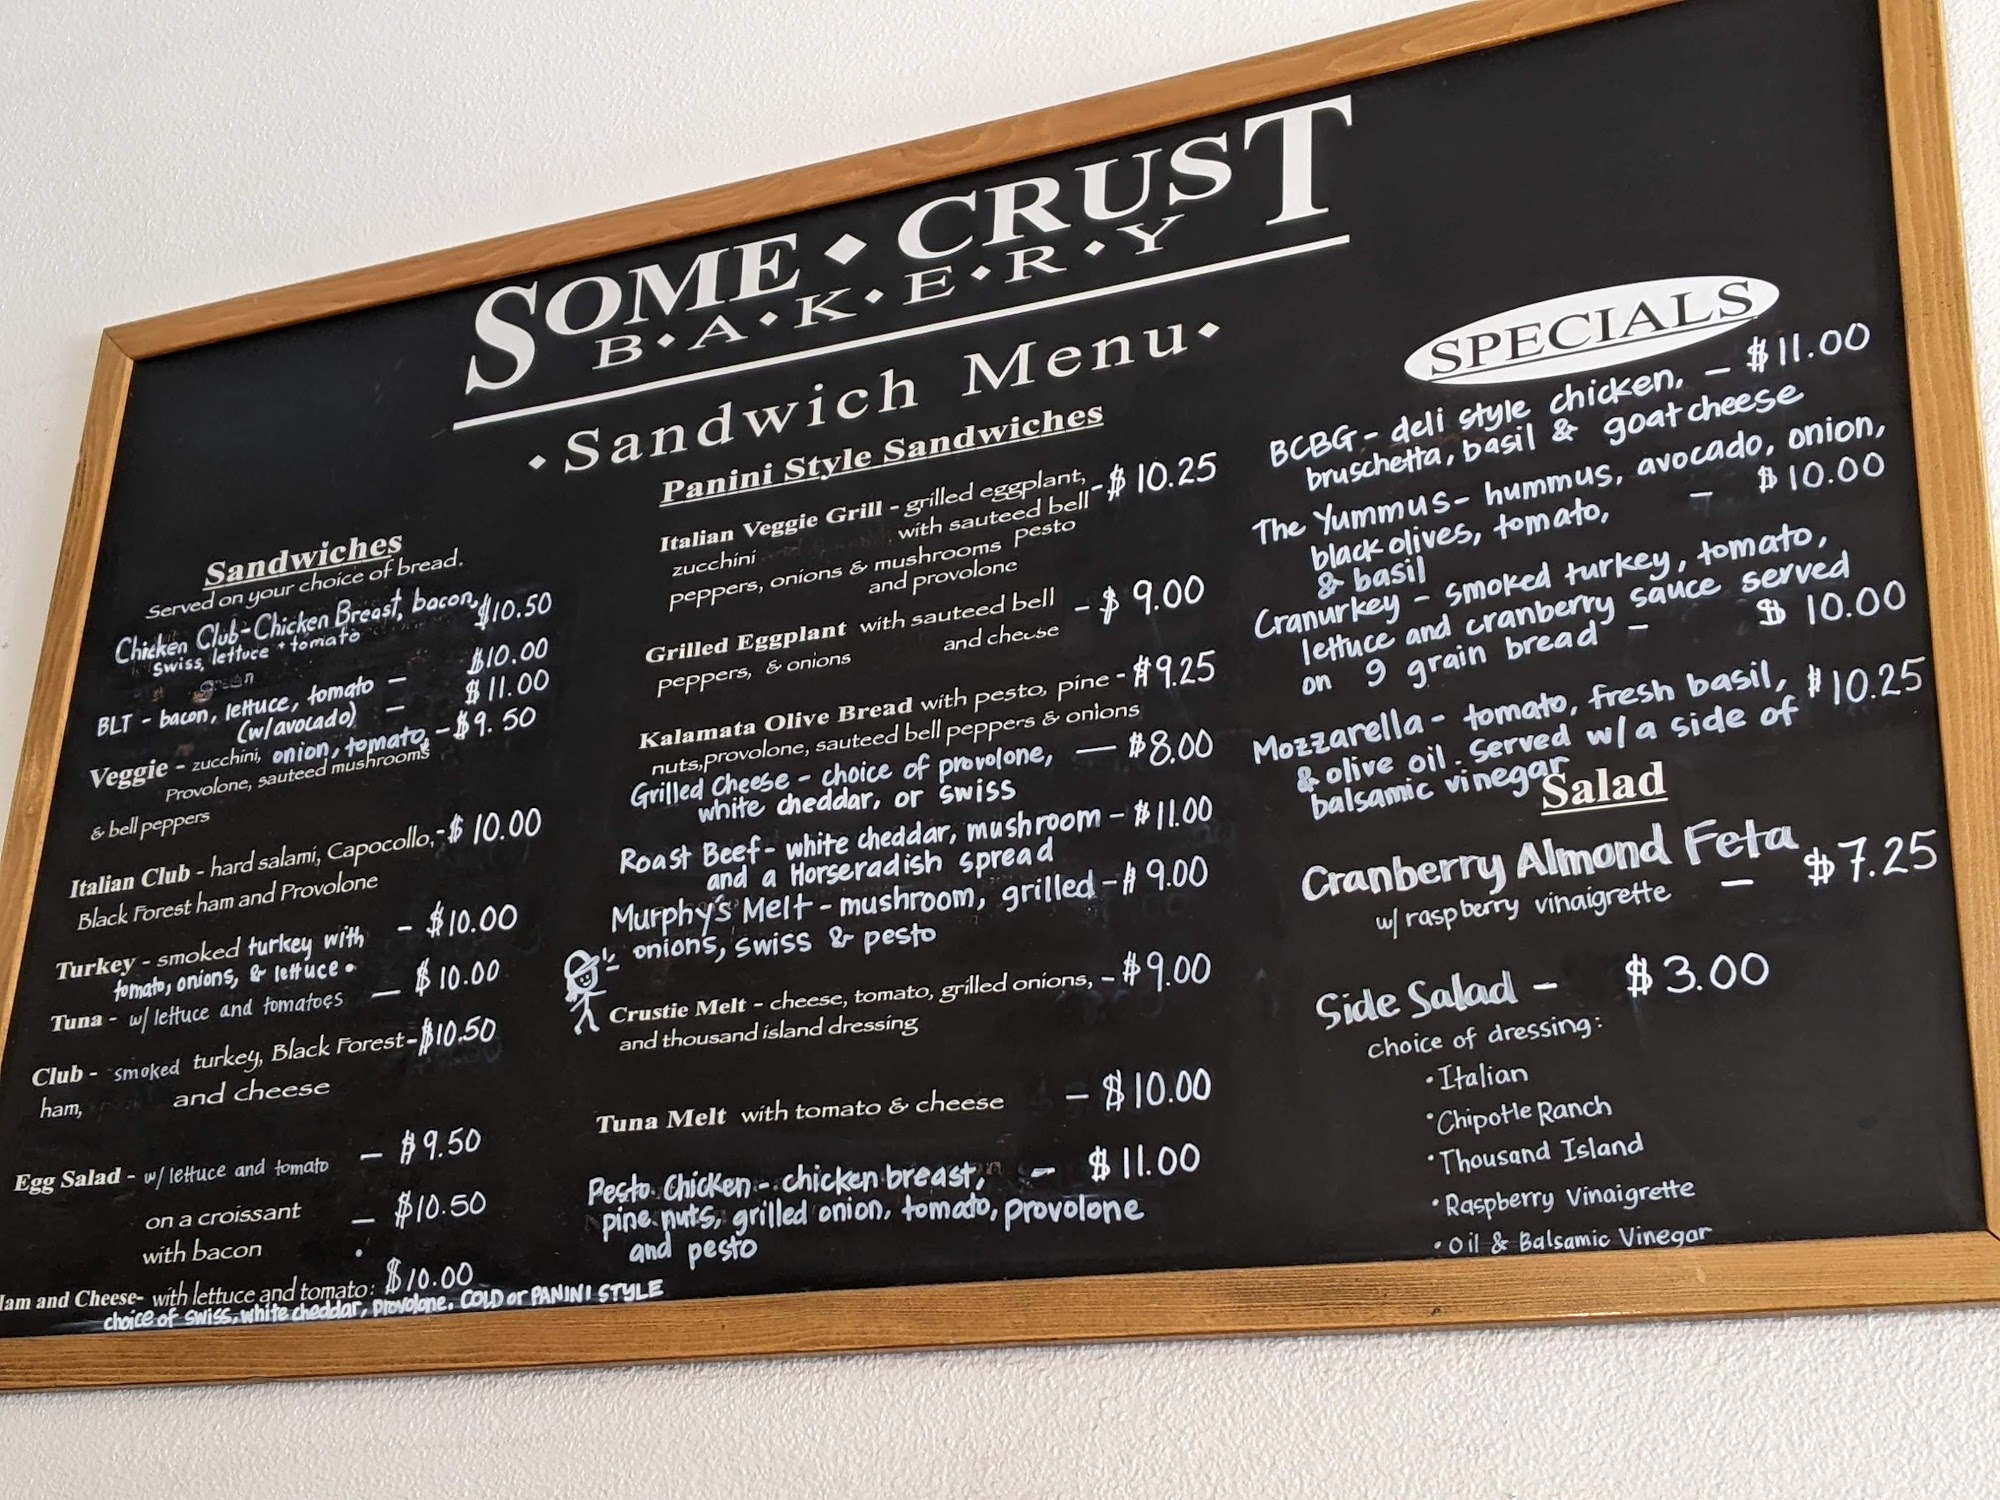 SOME ◆ CRUST
B◆A◆K◆E◆R◆Y
◆ Sandwich Menu ◆
Sandwiches
Served on your choice of bread.
Chicken Club - Chicken Breast, bacon, $10.50
swiss, lettuce + tomato
BLT - bacon, lettuce, tomato - $10.00
(w/avocado) - $11.00
Veggie - zucchini, onion, tomato, - $9.50
Provolone, sauteed mushrooms
& bell peppers
Italian Club - hard salami, Capocollo, - $10.00
Black Forest ham and Provolone
Turkey - smoked turkey with - $10.00
tomato, onions, & lettuce.
Tuna - w/ lettuce and tomatoes - $10.00
Club - smoked turkey, Black Forest - $10.50
ham, and cheese
Egg Salad - w/ lettuce and tomato - $9.50
on a croissant - $10.50
with bacon .
Ham and Cheese- with lettuce and tomato: $10.00
choice of swiss, white cheddar, provolone. COLD or PANINI STYLE
Panini Style Sandwiches
Italian Veggie Grill - grilled eggplant, - $10.25
zucchini with sauteed bell
peppers, onions & mushrooms pesto
and provolone
Grilled Eggplant with sauteed bell - $9.00
peppers, & onions and cheese
Kalamata Olive Bread with pesto, pine - $9.25
nuts, provolone, sauteed bell peppers & onions
Grilled Cheese - choice of provolone, — $8.00
white cheddar, or swiss
Roast Beef - white cheddar, mushroom - $11.00
and a Horseradish spread
Murphy's Melt - mushroom, grilled - $9.00
onions, swiss & pesto
Crustie Melt - cheese, tomato, grilled onions, - $9.00
and thousand island dressing
Tuna Melt with tomato & cheese - $10.00
Pesto Chicken - chicken breast, - $11.00
pine nuts, grilled onion, tomato, provolone
and pesto
SPECIALS
BCBG - deli style chicken, - $11.00
bruschetta, basil & goat cheese
The Yummus - hummus, avocado, onion,
black olives, tomato, - $10.00
& basil
Cranurkey - smoked turkey, tomato,
lettuce and cranberry sauce served
on 9 grain bread - $10.00
Mozzarella - tomato, fresh basil, $10.25
& olive oil. Served w/ a side of
balsamic vinegar
Salad
Cranberry Almond Feta
w/ raspberry vinaigrette - $7.25
Side Salad - $3.00
choice of dressing:
• Italian
• Chipotle Ranch
• Thousand Island
• Raspberry Vinaigrette
• Oil & Balsamic Vinegar